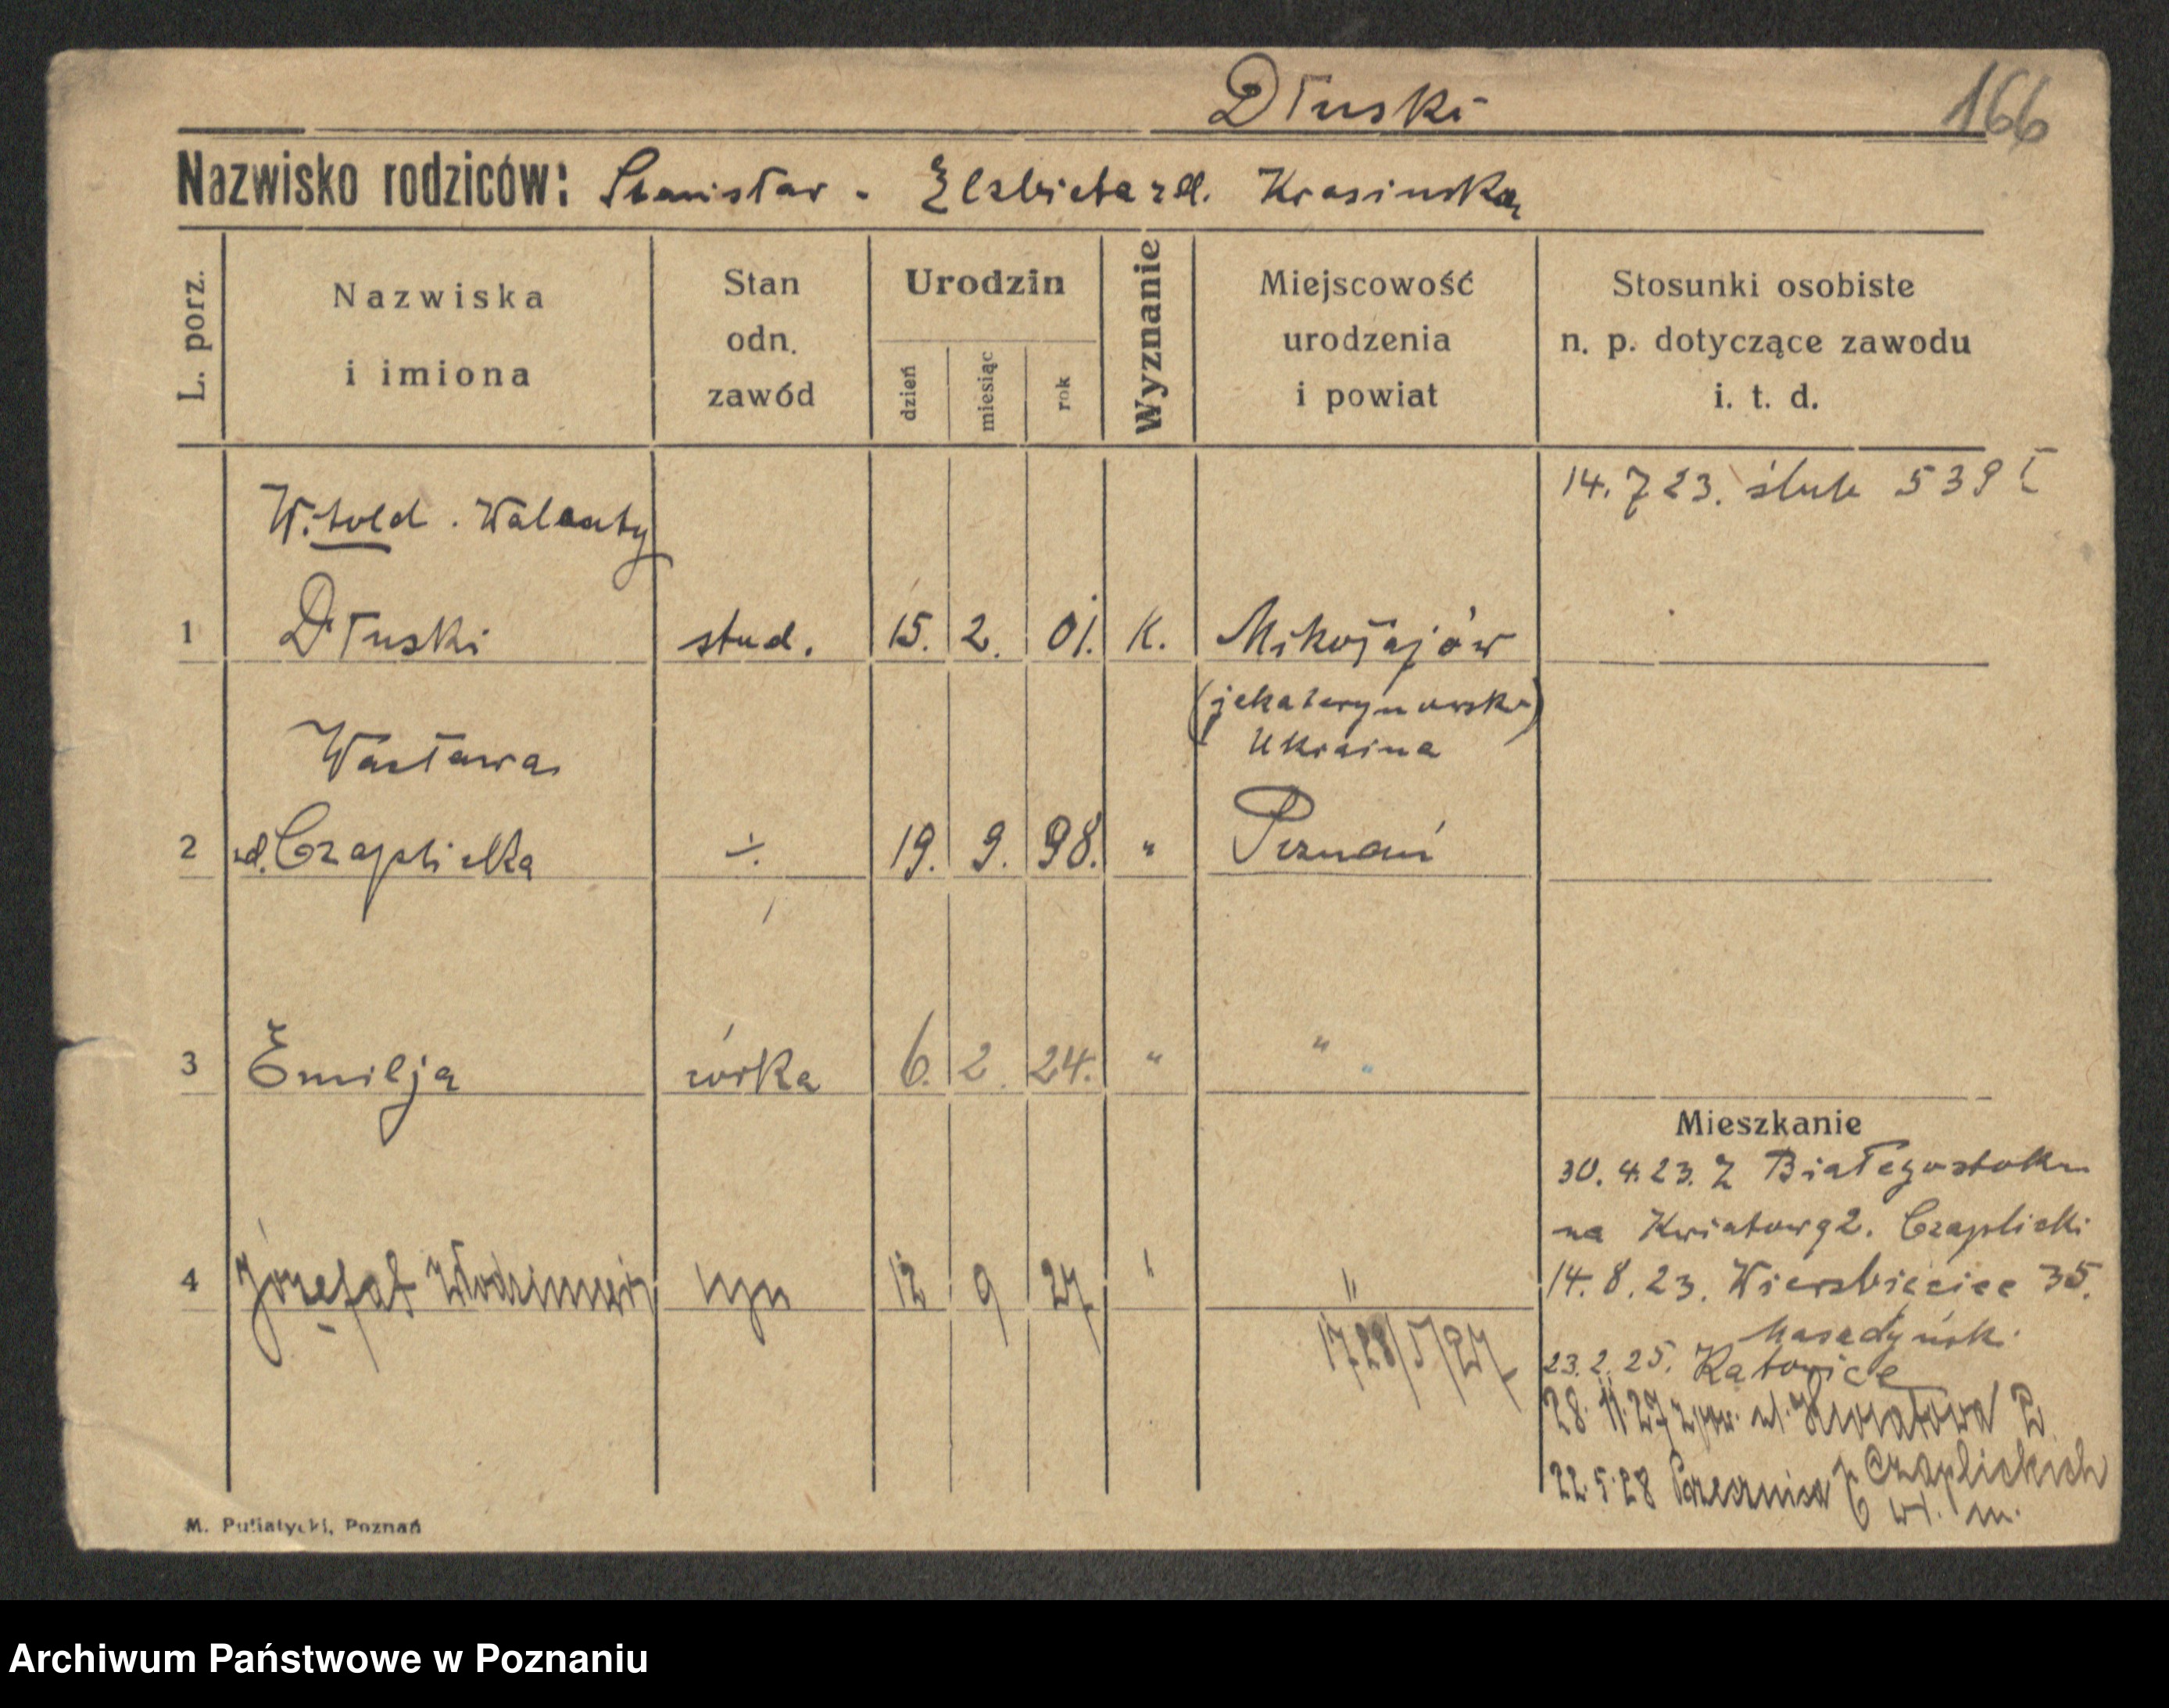 Dłuski
166
Nazwisko rodziców: Stanisław - Elżbieta zd. Krasińska
L. porz.
Nazwiska i imiona
Stan odn. zawód
Urodzin
dzień miesiąc rok
Wyznanie
Miejscowość urodzenia i powiat
Stosunki osobiste n. p. dotyczące zawodu i. t. d.
14. 7 23. ślub 539 I
Witold . Walenty
1 Dłuski stud. 15. 2. 01. K. Mikołajów
(jekaterynowsko)
Ukraina
Wacława
2 zd. Czaplicka ÷ 19. 9. 98. " Poznań
3 Emilja córka 6. 2. 24. " "
Mieszkanie
30. 4. 23. Z Białegostoku
na Kwiatową 2. Czaplicki
4 Józefat Włodzimierz syn 12 9 27 " "
14. 8. 23. Wierzbięcice 35.
1728/5/27
23. 2. 25. Katowice
28. 11. 27 ul. Kwiatowa 2
22. 5. 28 Czaplickich
wł. m.
M. Putiatycki, Poznań
Archiwum Państwowe w Poznaniu